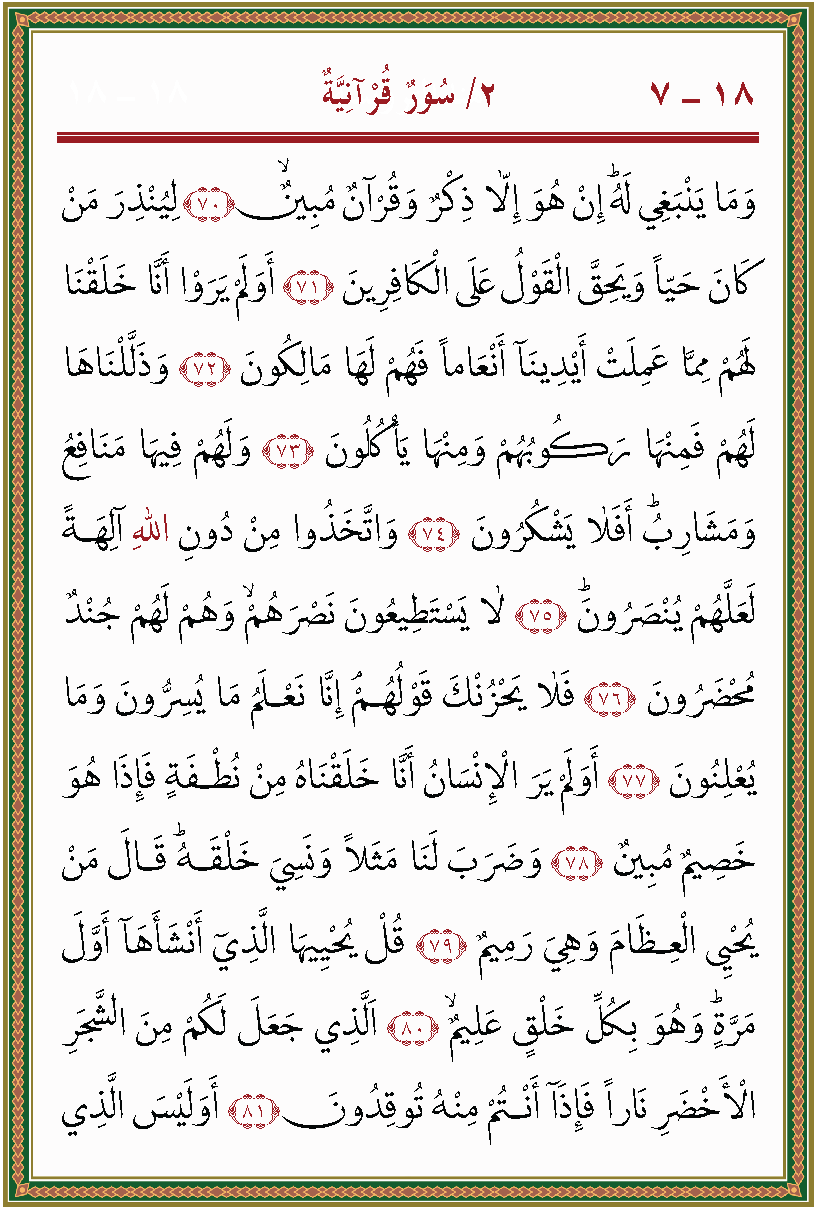 ١٨ – ٧ ٢/ سُوَرٌ قُرْآنِيَّةٌ ١٨ – ١٨
وَمَا يَنْبَغِي لَهُ ۜ إِنْ هُوَ إِلَّا ذِكْرٌ وَقُرْآنٌ مُبِينٌ ۙ ﴿٧٠﴾ لِيُنْذِرَ مَنْ
كَانَ حَيّاً وَيَحِقَّ الْقَوْلُ عَلَى الْكَافِرِينَ ﴿٧١﴾ أَوَلَمْ يَرَوْا أَنَّا خَلَقْنَا
لَهُمْ مِمَّا عَمِلَتْ أَيْدِينَآ أَنْعَاماً فَهُمْ لَهَا مَالِكُونَ ﴿٧٢﴾ وَذَلَّلْنَاهَا
لَهُمْ فَمِنْهَا رَكُوبُهُمْ وَمِنْهَا يَأْكُلُونَ ﴿٧٣﴾ وَلَهُمْ فِيهَا مَنَافِعُ
وَمَشَارِبُ ۜ أَفَلَا يَشْكُرُونَ ﴿٧٤﴾ وَاتَّخَذُوا مِنْ دُونِ اللهِ آلِهَةً
لَعَلَّهُمْ يُنْصَرُونَ ۜ ﴿٧٥﴾ لَا يَسْتَطِيعُونَ نَصْرَهُمْ ۙ وَهُمْ لَهُمْ جُنْدٌ
مُحْضَرُونَ ﴿٧٦﴾ فَلَا يَحْزُنْكَ قَوْلُهُمْ ۘ إِنَّا نَعْلَمُ مَا يُسِرُّونَ وَمَا
يُعْلِنُونَ ﴿٧٧﴾ أَوَلَمْ يَرَ الْإِنْسَانُ أَنَّا خَلَقْنَاهُ مِنْ نُطْفَةٍ فَإِذَا هُوَ
خَصِيمٌ مُبِينٌ ﴿٧٨﴾ وَضَرَبَ لَنَا مَثَلاً وَنَسِيَ خَلْقَهُ ۜ قَالَ مَنْ
يُحْيِي الْعِظَامَ وَهِيَ رَمِيمٌ ﴿٧٩﴾ قُلْ يُحْيِيهَا الَّذِيٓ أَنْشَأَهَآ أَوَّلَ
مَرَّةٍ ۜ وَهُوَ بِكُلِّ خَلْقٍ عَلِيمٌ ۙ ﴿٨٠﴾ اَلَّذِي جَعَلَ لَكُمْ مِنَ الشَّجَرِ
الْأَخْضَرِ نَاراً فَإِذَآ أَنْتُمْ مِنْهُ تُوقِدُونَ ﴿٨١﴾ أَوَلَيْسَ الَّذِي